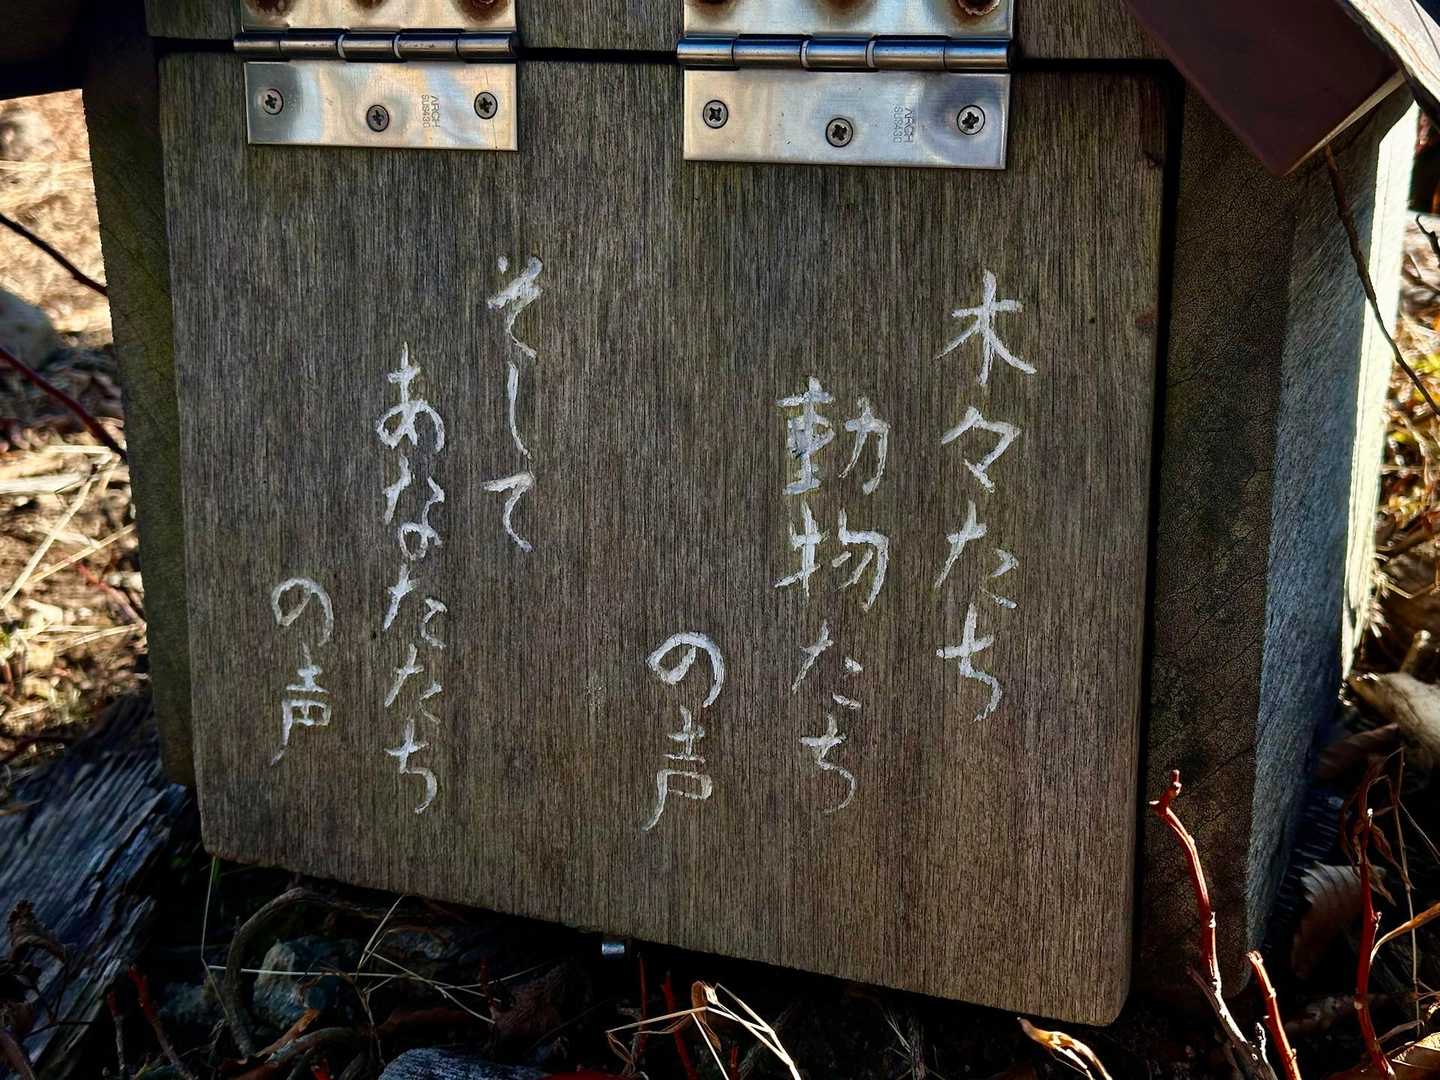 木々たち
動物たち
の声
そして
あなたたち
の声
ARCH
SUS430
ARCH
SUS430